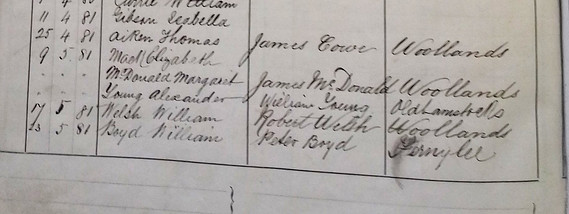 4 Currie William
11 4 81 Gibson Isabella
25 4 81 Aiken Thomas James Cowe Woollands
9 5 81 Mack Elizabeth
" " " McDonald Margaret James McDonald Woollands
Young Alexander William Young Oldhamstocks
17 5 81 Welsh William Robert Welsh Woollands
23 5 81 Boyd William Peter Boyd Fernylee